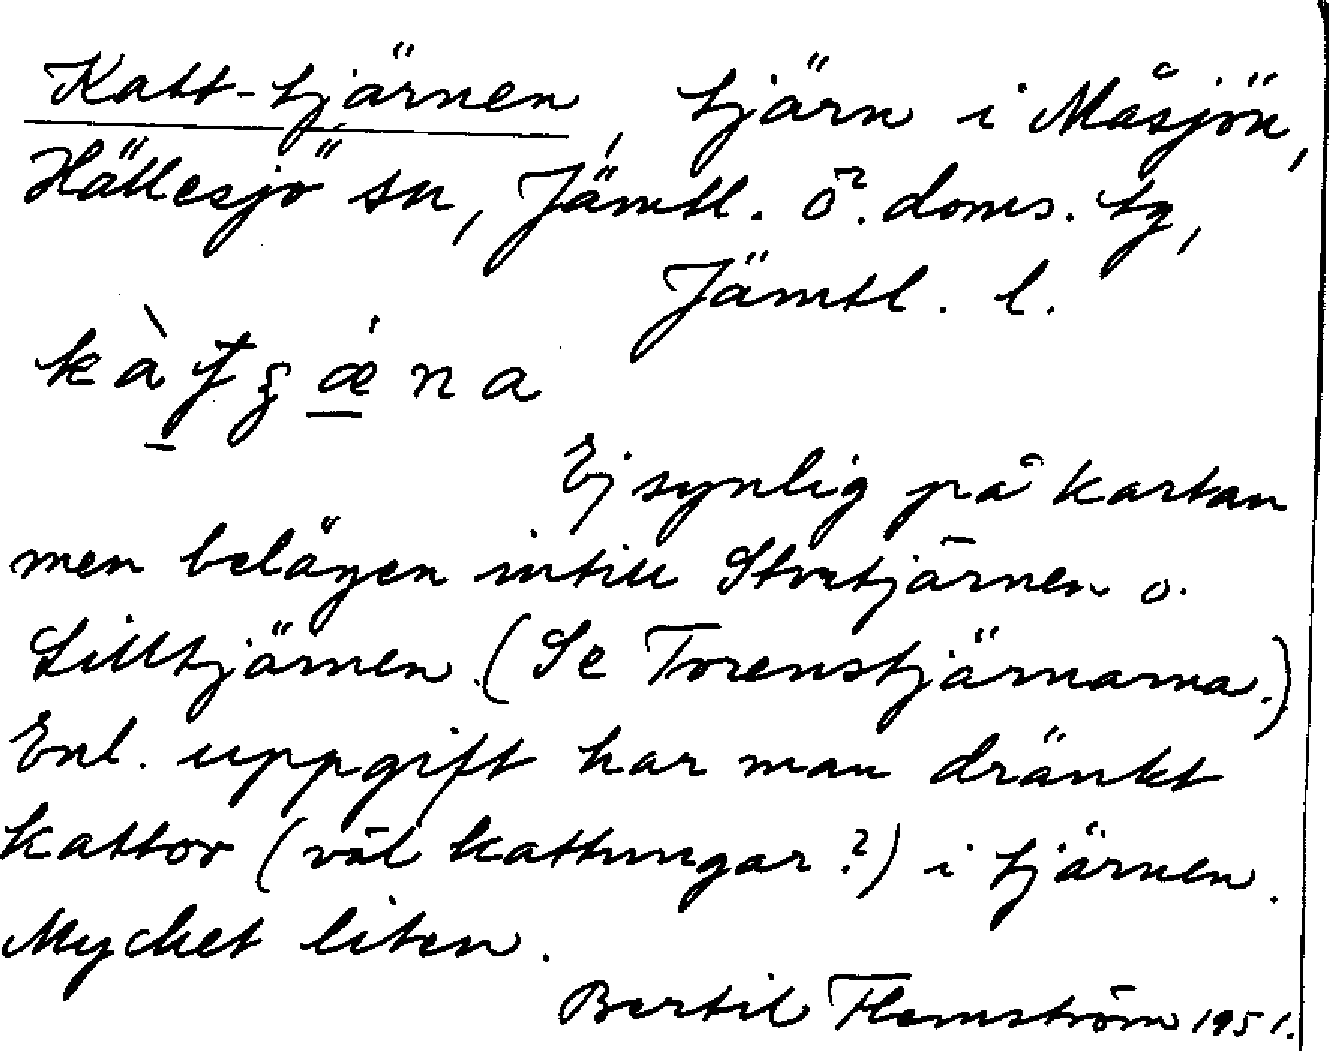 Katt-tjärnen, tjärn i Måsjön,
Hällesjö sn, Jämtl. ö. doms. tg,
Jämtl. l.
Ej synlig på kartan
men belägen intill Stortjärnen o.
Lilltjärnen. (Se Torenstjärnarna.)
Enl. uppgift har man dränkt
kattor (väl kattungar?) i tjärnen.
Mycket liten.
Bertil Flemström 1951.